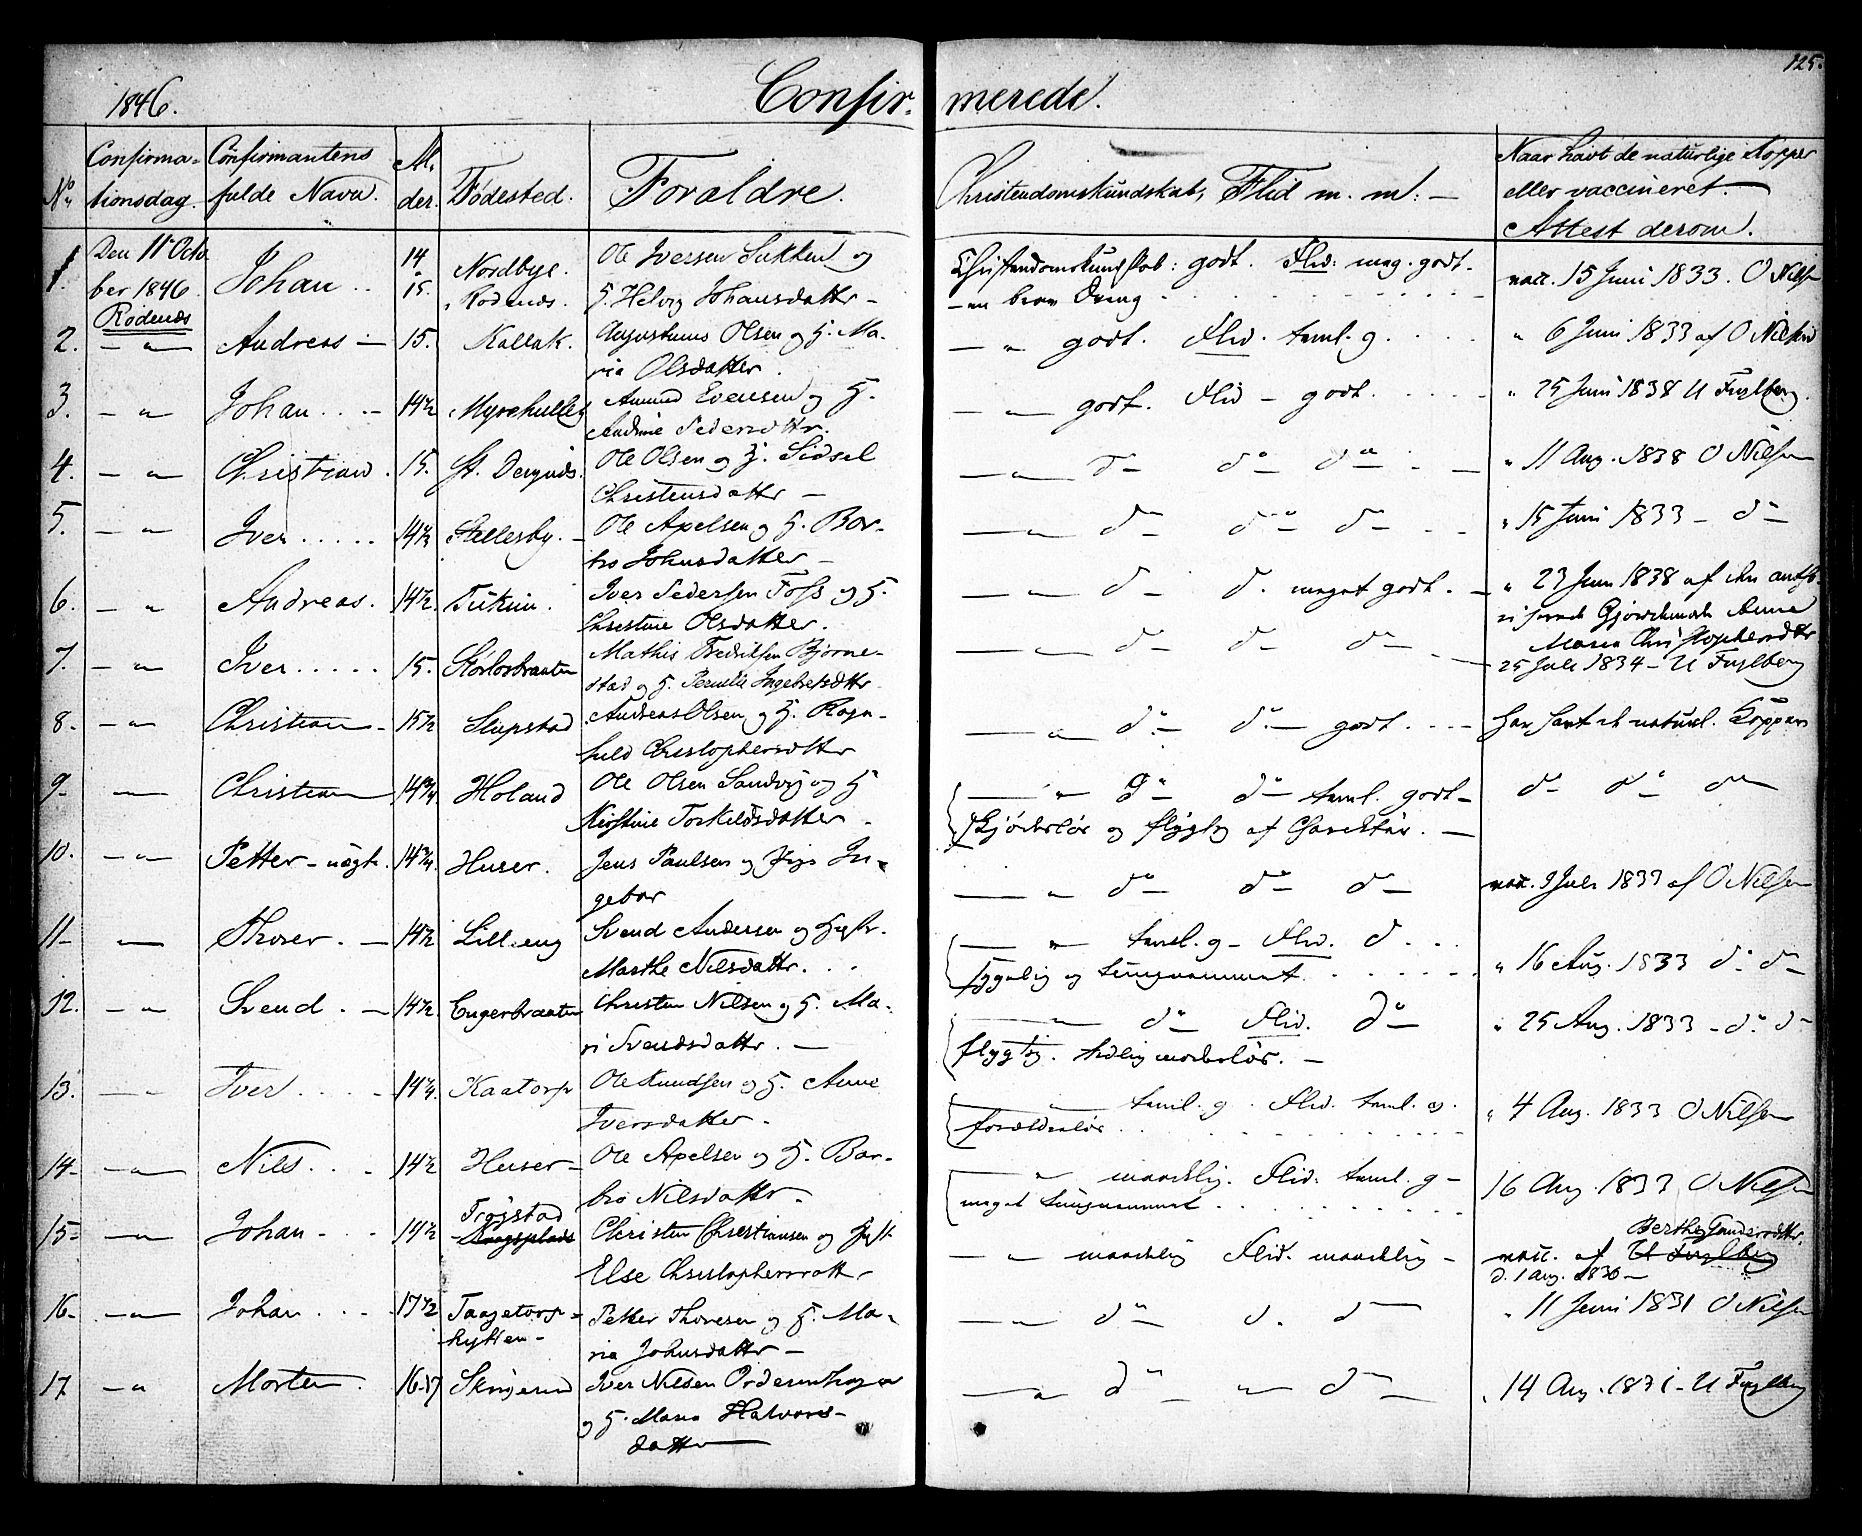 125.
1846. Confir- merede.
No
Confirma-
tionsdag.
Confirmantens
fulde Navn.
Al-
der.
Fødested.
Forældre.
Christendomskundskab, Flid m. m. —
Naar havt de naturlige Kopper
eller vaccineret.
Attest derom.
1. Den 11 Octo
ber 1846
Rødenæs
Johan .. 14
15. Nordbye
Rødenæs. Ole Iversen Sukken og
H. Helvig Johansdatter — Christendomskundskab: godt. Flid: meg. godt.
— en brav Dreng vacc. 15 Juni 1833. O Nilsen
2. — " — Andreas — 15. Kallak. Augustinus Olsen og H. Ma-
ria Olsdatter. — " godt. Flid. taml. g. " 6 Juni 1833 af O Nilsen
3. — " Johan . . . 14½ Myrehullet Amund Evensen og H.
Andrine Pedersdttr. — " — godt. Flid — godt. " 25 Juni 1838 U Fuglberg.
4. — " Christian. 15. Ole Olsen og H. Sidsel
Christensdattr — — " — do — do — do " 11 Aug. 1838 O Nilsen
5. — " — Iver . . . . . 14½ Stellesby. — Ole Apelsen og H. Bar-
bro Johnsdatter — — " — do — do — do — " 15 Juni 1833 — do —
6. — " Andreas. 14½ Iver Pedersen Foss og H.
Christine Olsdatter. — " — d — d. meget godt. — " 23 Juni 1838 af
Gjordemoder Anne
Maria Christophersdttr
7. — " — Iver . . . . . 15. Mathis Fredriksen Bjørne-
stad og H. Pernille Ingebretsdttr — " — do — do — do — 25 Juli 1834 — U Fuglberg
8. — " — Christian — 15½ Slupstad Andreas Olsen og H. Ragn-
hild Christophersdttr — " — do — do — godt. har havt de naturl. Kopper
9. — Christian 14¾ Holand Ole Olsen Sandvig og H
Kirstine Torkildsdatter. — " do — do — taml. godt —
og flygtig af Charakter. — do — do — do
10. — " — Petter — uægte. 14¾. Huser. Jens Paulsen og Pige In-
gebor — " do — do — do — vacc. 9 Juli 1833 af O Nilsen
11 — Thorer. — 14½ Lilleeng Svend Andersen og Hustr.
Marthe Nilsdattr. . . — " — taml. g — Flid. d . . .
" 16 Aug. 1833 do do
12. — " — Svend . — 14½. Engerbraaten Christen Nilsen og H. Ma-
ri Svendsdattr. — do — Flid. do
flygtig. — " 25 Aug. 1833 — do do
13. — " Iver . . . . 14¼. Kaatorp Ole Knudsen og H. Anne
Iversdatter. — taml. g. Flid. taml. g.
" 4 Aug. 1833 O Nilsen
14 — " — Nils. . . 14½ Huser — Ole Apelsen og H. Bar-
bro Nilsdattr. " maadelig. Flid. taml. g —
meget 16 Aug. 1833 O Nilsen
15 — " — Johan . . . 14½ Trøgstad
Christen Christiansen og Hust
Else Christophersdattr — " — maadelig Flid. maadelig — vacc. af Berthe Gundersdttr.
U Fuglberg
d. 1 Aug. 1836 —
16 — " — Johan . . . 17½ Taagetorp-
hytten — Petter Thoresen og H. Ma-
ria Johnsdattr — — " — do d. d — " 11 Juni 1831 O Nilsen
17 — " Morten. 16-17 Skrigerud Iver Nilsen
og H. Maria Halvors-
datter — " do — " — do — " 14 Aug. 1831 — U Fuglberg